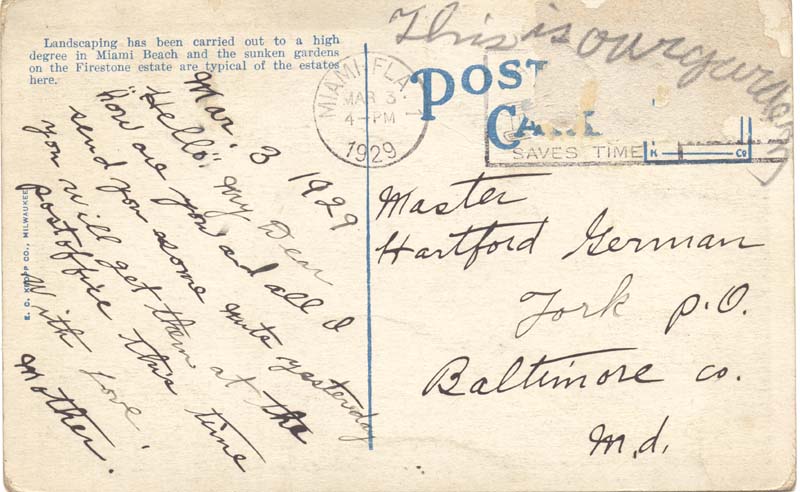 This is our gurden
Landscaping has been carried out to a high
degree in Miami Beach and the sunken gardens
on the Firestone estate are typical of the estates
here.
POST
CAR
MIAMI, FLA.
MAR 3
4-PM
1929
SAVES TIME
K Co
E. C. KROPP CO., MILWAUKEE
Mar. 3 1929
"Hello" my Dear
how are you and all I
send you some nuts yesterday
you will get them at the
postoffice this time
With Love.
Mother.
Master
Hartford German
York P.O.
Baltimore Co.
M.d.